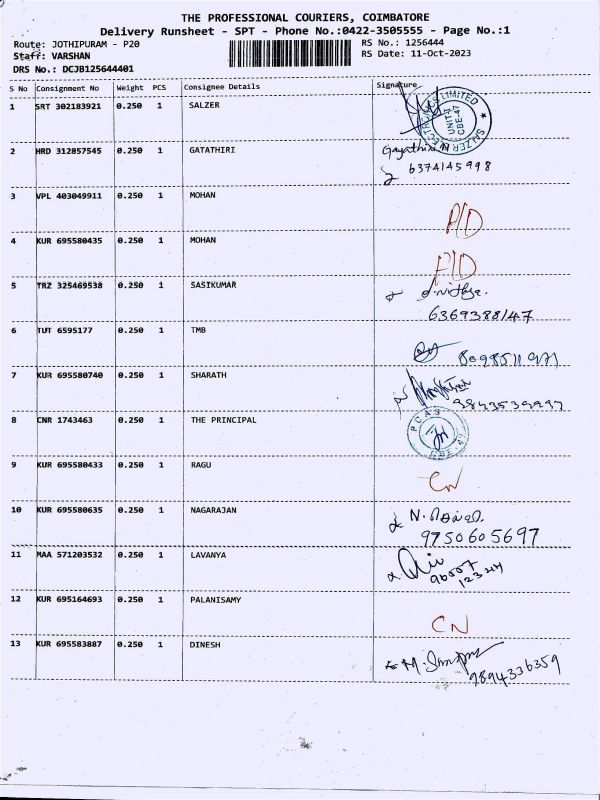 THE PROFESSIONAL COURIERS, COIMBATORE
Delivery Runsheet - SPT - Phone No.:0422-3505555 - Page No.:1
Route: JOTHIPURAM - P20 RS No.: 1256444
Staff: VARSHAN RS Date: 11-Oct-2023
DRS No.: DCJB125644401
S No Consignment No Weight PCS Consignee Details Signature
1 SRT 302183921 0.250 1 SALZER
SALZER ELECTRONICS LIMITED UNIT-1 CBE-47
2 HRD 312857545 0.250 1 GATATHIRI Gayathiri N
6374145998
3 VPL 403049911 0.250 1 MOHAN
P/D
4 KUR 695580435 0.250 1 MOHAN
P/D
5 TRZ 325469538 0.250 1 SASIKUMAR
6369388147
6 TUT 6595177 0.250 1 TMB
7 KUR 695580740 0.250 1 SHARATH
9843539997
8 CNR 1743463 0.250 1 THE PRINCIPAL
P C A S CBE-47
9 KUR 695580433 0.250 1 RAGU
CN
10 KUR 695580635 0.250 1 NAGARAJAN
9750605697
11 MAA 571203532 0.250 1 LAVANYA
12344
12 KUR 695164693 0.250 1 PALANISAMY
CN
13 KUR 695583887 0.250 1 DINESH
9894336359